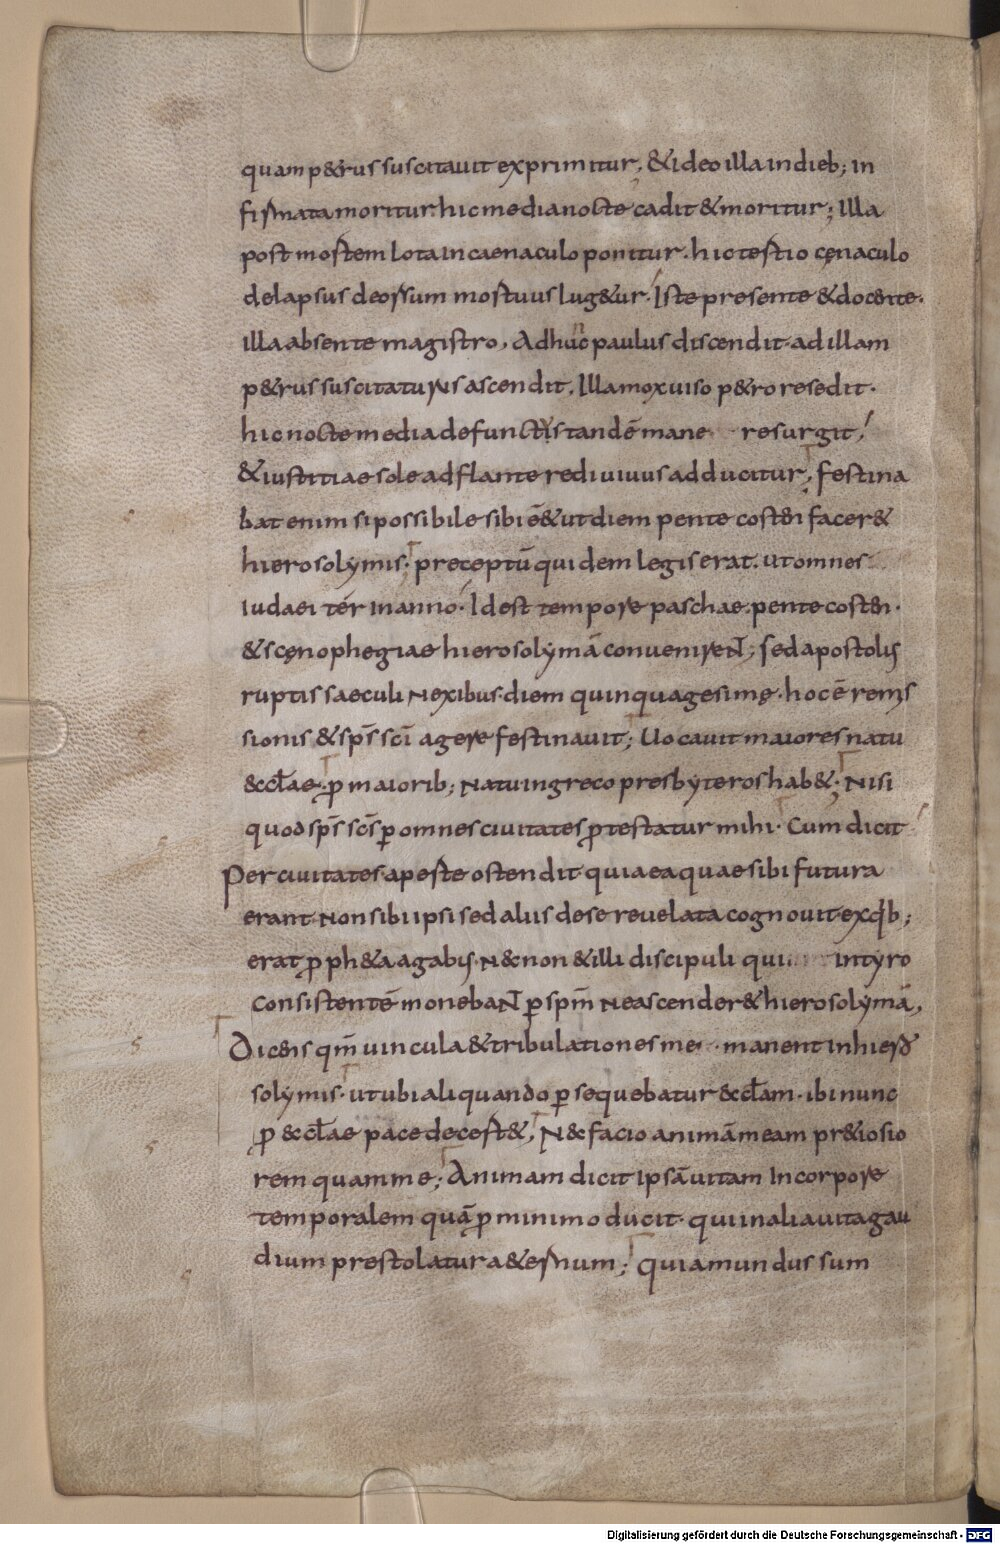 quam p&rus suscitauit exprimitur; & ideo illa in dieb; in
firmata moritur. hic media nocte cadit & moritur; Illa
post mortem lota in caenaculo ponitur. hic tertio cęnaculo
delapsus deorsum mortuus lug&ur. Iste presente & docente.
illa absente magistro, Adhuc paulus discendit. ad illam
p&rus suscitaturus ascendit. Illa mox uiso p&ro resedit.
hic nocte media defunctus tandē mane resurgit,
& iustitiae sole adflante rediuiuus adducitur; festina
bat enim si possibile sibi ēẽt ut diem pentecosten facer&
hierosolymis. preceptū quidem legis erat. ut omnes
iudaei ter in anno. Id est tempore paschae. pentecosten.
& scęnophegiae hierosolymā conuenireNT; sed apostolis
ruptis saeculi Nexibus. diem quinquagesimę. hoc ē remis
sionis & sp̄s sc̄i agere festinauit; Uocauit maiores natu
&ccl̄ae. ꝓ maiorib; Natu in greco presbyteros hab&; Nisi
quod sp̄s sc̄s ꝑ omnes ciuitates ꝓtestatur mihi. Cum dicit
Per ciuitates. aperte ostendit quia ea quae sibi futura
erant Non sibi ipsi sed aliis de se reuelata cognouit. ex q̄b;
erat ꝓph&a agabis. N& non & illi discipuli qui in tyro
consistentē monebaNT ꝑ spm̄ Ne ascender& hierosolymā,
Dicens qm̄ uincula & tribulationes me manent in hiero
solymis. ut ubi aliquando ꝑsequebatur &ccl̄am. ibi nunc
ꝓ &ccl̄ae pace decert&, N& facio animā meam pr&iosio
rem quam me; Animam dicit ipsā uitam in corpore
temporalem quā ꝓ minimo ducit. qui in alia uita gau
dium prestolatur a&ernum; quia mundus sum
Digitalisierung gefördert durch die Deutsche Forschungsgemeinschaft - DFG